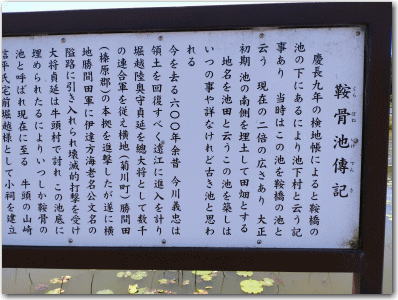 鞍骨池傳記
くらほねいけでんき
慶長九年の検地帳によると鞍橋の
池の下にあるにより池下村と云う記
事あり 当時はこの池を鞍橋の池と
云う 現在の二倍の広さあり 大正
初期 池の南側を埋土して田畑とする
地名を池田と云うこの池を築しは
いつの事や詳なけれど古き池と思わ
れる
今を去る六〇〇年余昔 今川義忠は
領土を回復すべく遠江に進入を計り
堀越陸奥守貞延を總大将として数千
の連合軍を従え横地(菊川町)勝間田
(榛原郡)の本拠を進撃したが遂に横
地勝間田軍に伊達方海老名公文名の
隘路に引き入れられ壊滅的打撃を受け
大将貞延は牛頭村で討れ この池底に
埋められたるによりいつしか鞍骨の
池と呼ばれ現在に至る 牛頭の山崎
信平氏宅前堀越様として小祠を建立